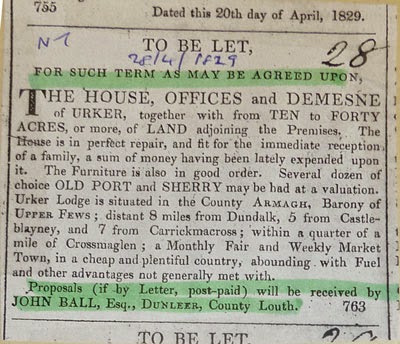 755 Dated this 20th day of April, 1829.
TO BE LET,
28
28/4/1829
FOR SUCH TERM AS MAY BE AGREED UPON,
THE HOUSE, OFFICES and DEMESNE
of URKER, together with from TEN to FORTY
ACRES, or more, of LAND adjoining the Premises. The
House is in perfect repair, and fit for the immediate reception
of a family, a sum of money having been lately expended upon
it. The Furniture is also in good order. Several dozen of
choice OLD PORT and SHERRY may be had at a valuation.
Urker Lodge is situated in the County ARMAGH, Barony of
UPPER FEWS; distant 8 miles from Dundalk, 5 from Castle-
blayney, and 7 from Carrickmacross; within a quarter of a
mile of Crossmaglen; a Monthly Fair and Weekly Market
Town, in a cheap and plentiful country, abounding with Fuel
and other advantages not generally met with.
Proposals (if by Letter, post-paid) will be received by
JOHN BALL, Esq., DUNLEER, County Louth. 763
TO BE LET